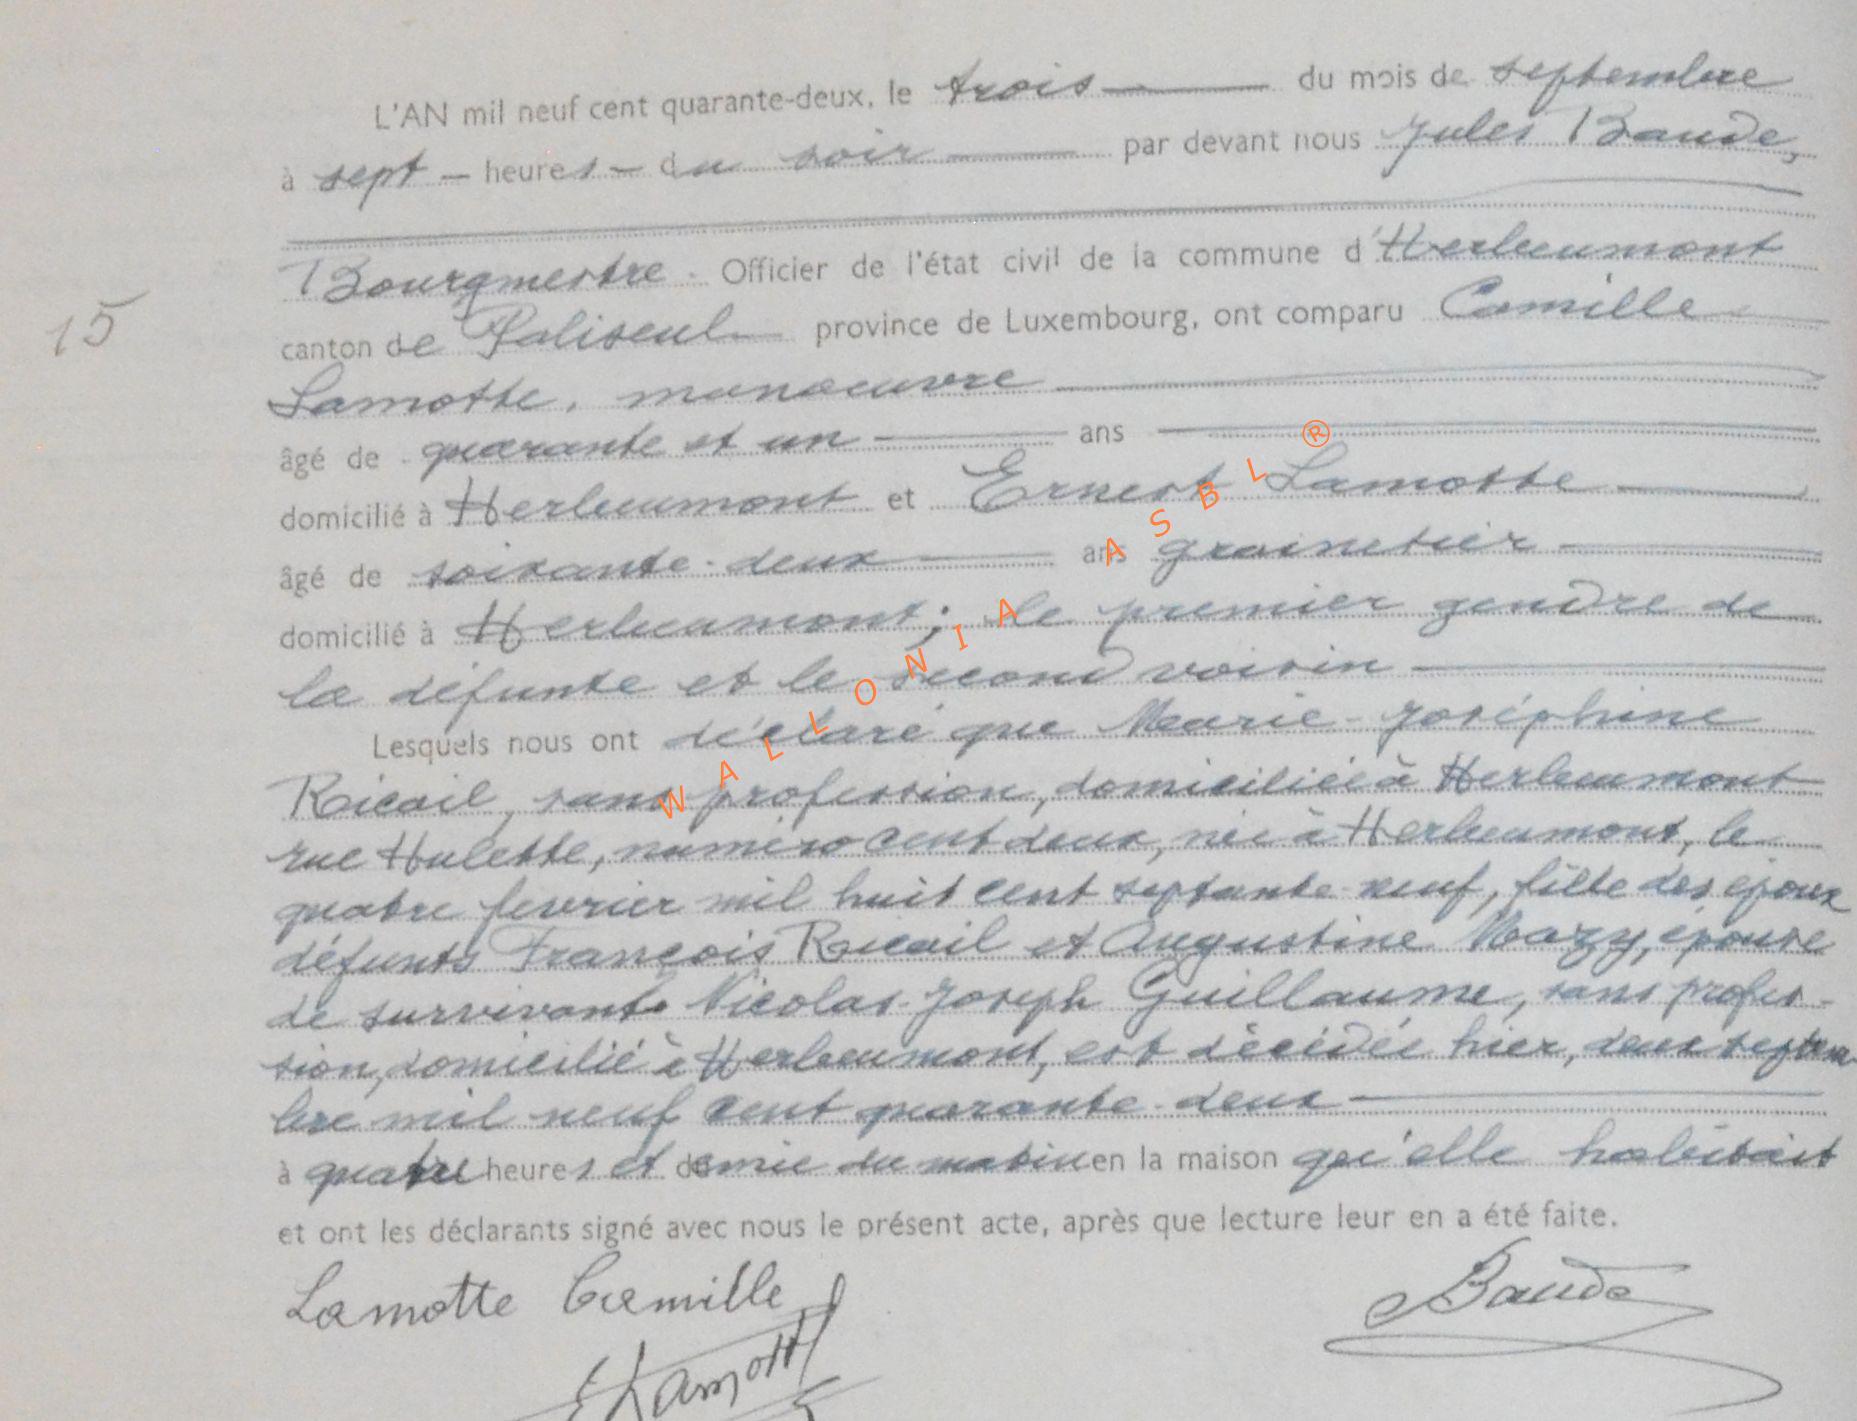 L'AN mil neuf cent quarante-deux, le trois du mois de septembre
à sept – heures – du soir par devant nous Jules Baude,
Bourgmestre - Officier de l'état civil de la commune d'Herbeumont
canton de Paliseul province de Luxembourg, ont comparu Camille
Lamotte, manoeuvre
âgé de quarante et un ans
domicilié à Herbeumont et Ernest Lamotte
âgé de soixante-deux ans grainetier
domicilié à Herbeumont; le premier gendre de
la défunte et le second voisin
Lesquels nous ont déclaré que Marie-Joséphine
Ricail, sans profession, domiciliée à Herbeumont
rue Hulette, numéro cent deux, née à Herbeumont, le
quatre fevrier mil huit cent septante-neuf, fille des époux
défunts François Ricail et Augustine Mazy, épouse
de survivant Nicolas-Joseph Guillaume, sans profes-
sion, domicilié à Herbeumont, est décédée hier, deux septem
bre mil neuf cent quarante-deux
à quatre heures et demie du matin en la maison qu'elle habitait
et ont les déclarants signé avec nous le présent acte, après que lecture leur en a été faite.
15
Lamotte Camille
Baude
ELamott
WALLONIA ASBL ®